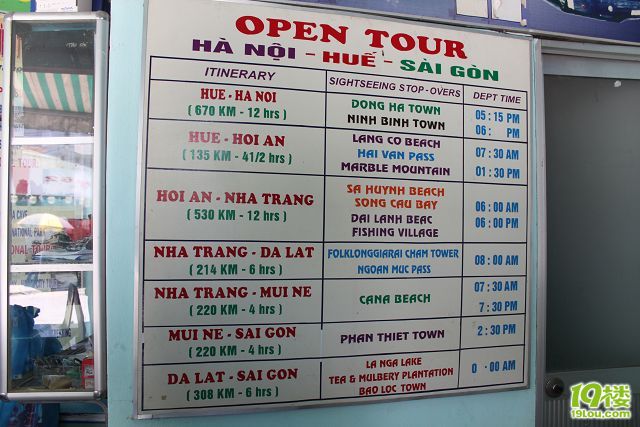 OPEN TOUR
HÀ NỘI - HUẾ - SÀI GÒN
ITINERARY SIGHTSEEING STOP-OVERS DEPT TIME
HUE - HA NOI
( 670 KM - 12 hrs )
DONG HA TOWN
NINH BINH TOWN
05 : 15 PM
06 : PM
HUE - HOI AN
( 135 KM - 41/2 hrs )
LANG CO BEACH
HAI VAN PASS
MARBLE MOUNTAIN
07 : 30 AM
01 : 30 PM
HOI AN - NHA TRANG
( 530 KM - 12 hrs )
SA HUYNH BEACH
SONG CAU BAY
DAI LANH BEAC
FISHING VILLAGE
06 : 00 AM
06 : 00 PM
NHA TRANG - DA LAT
( 214 KM - 6 hrs )
FOLKLONGGIARAI CHAM TOWER
NGOAN MUC PASS
08 : 00 AM
NHA TRANG - MUI NE
( 220 KM - 4 hrs )
CANA BEACH
07 : 30 AM
7 : 30 PM
MUI NE - SAI GON
( 220 KM - 4 hrs )
PHAN THIET TOWN
2 : 30 PM
DA LAT - SAI GON
( 308 KM - 6 hrs )
LA NGA LAKE
TEA & MULBERY PLANTATION
BAO LOC TOWN
0 : 00 AM
CAVE
NATIONAL
TOUR
19楼
19lou.com